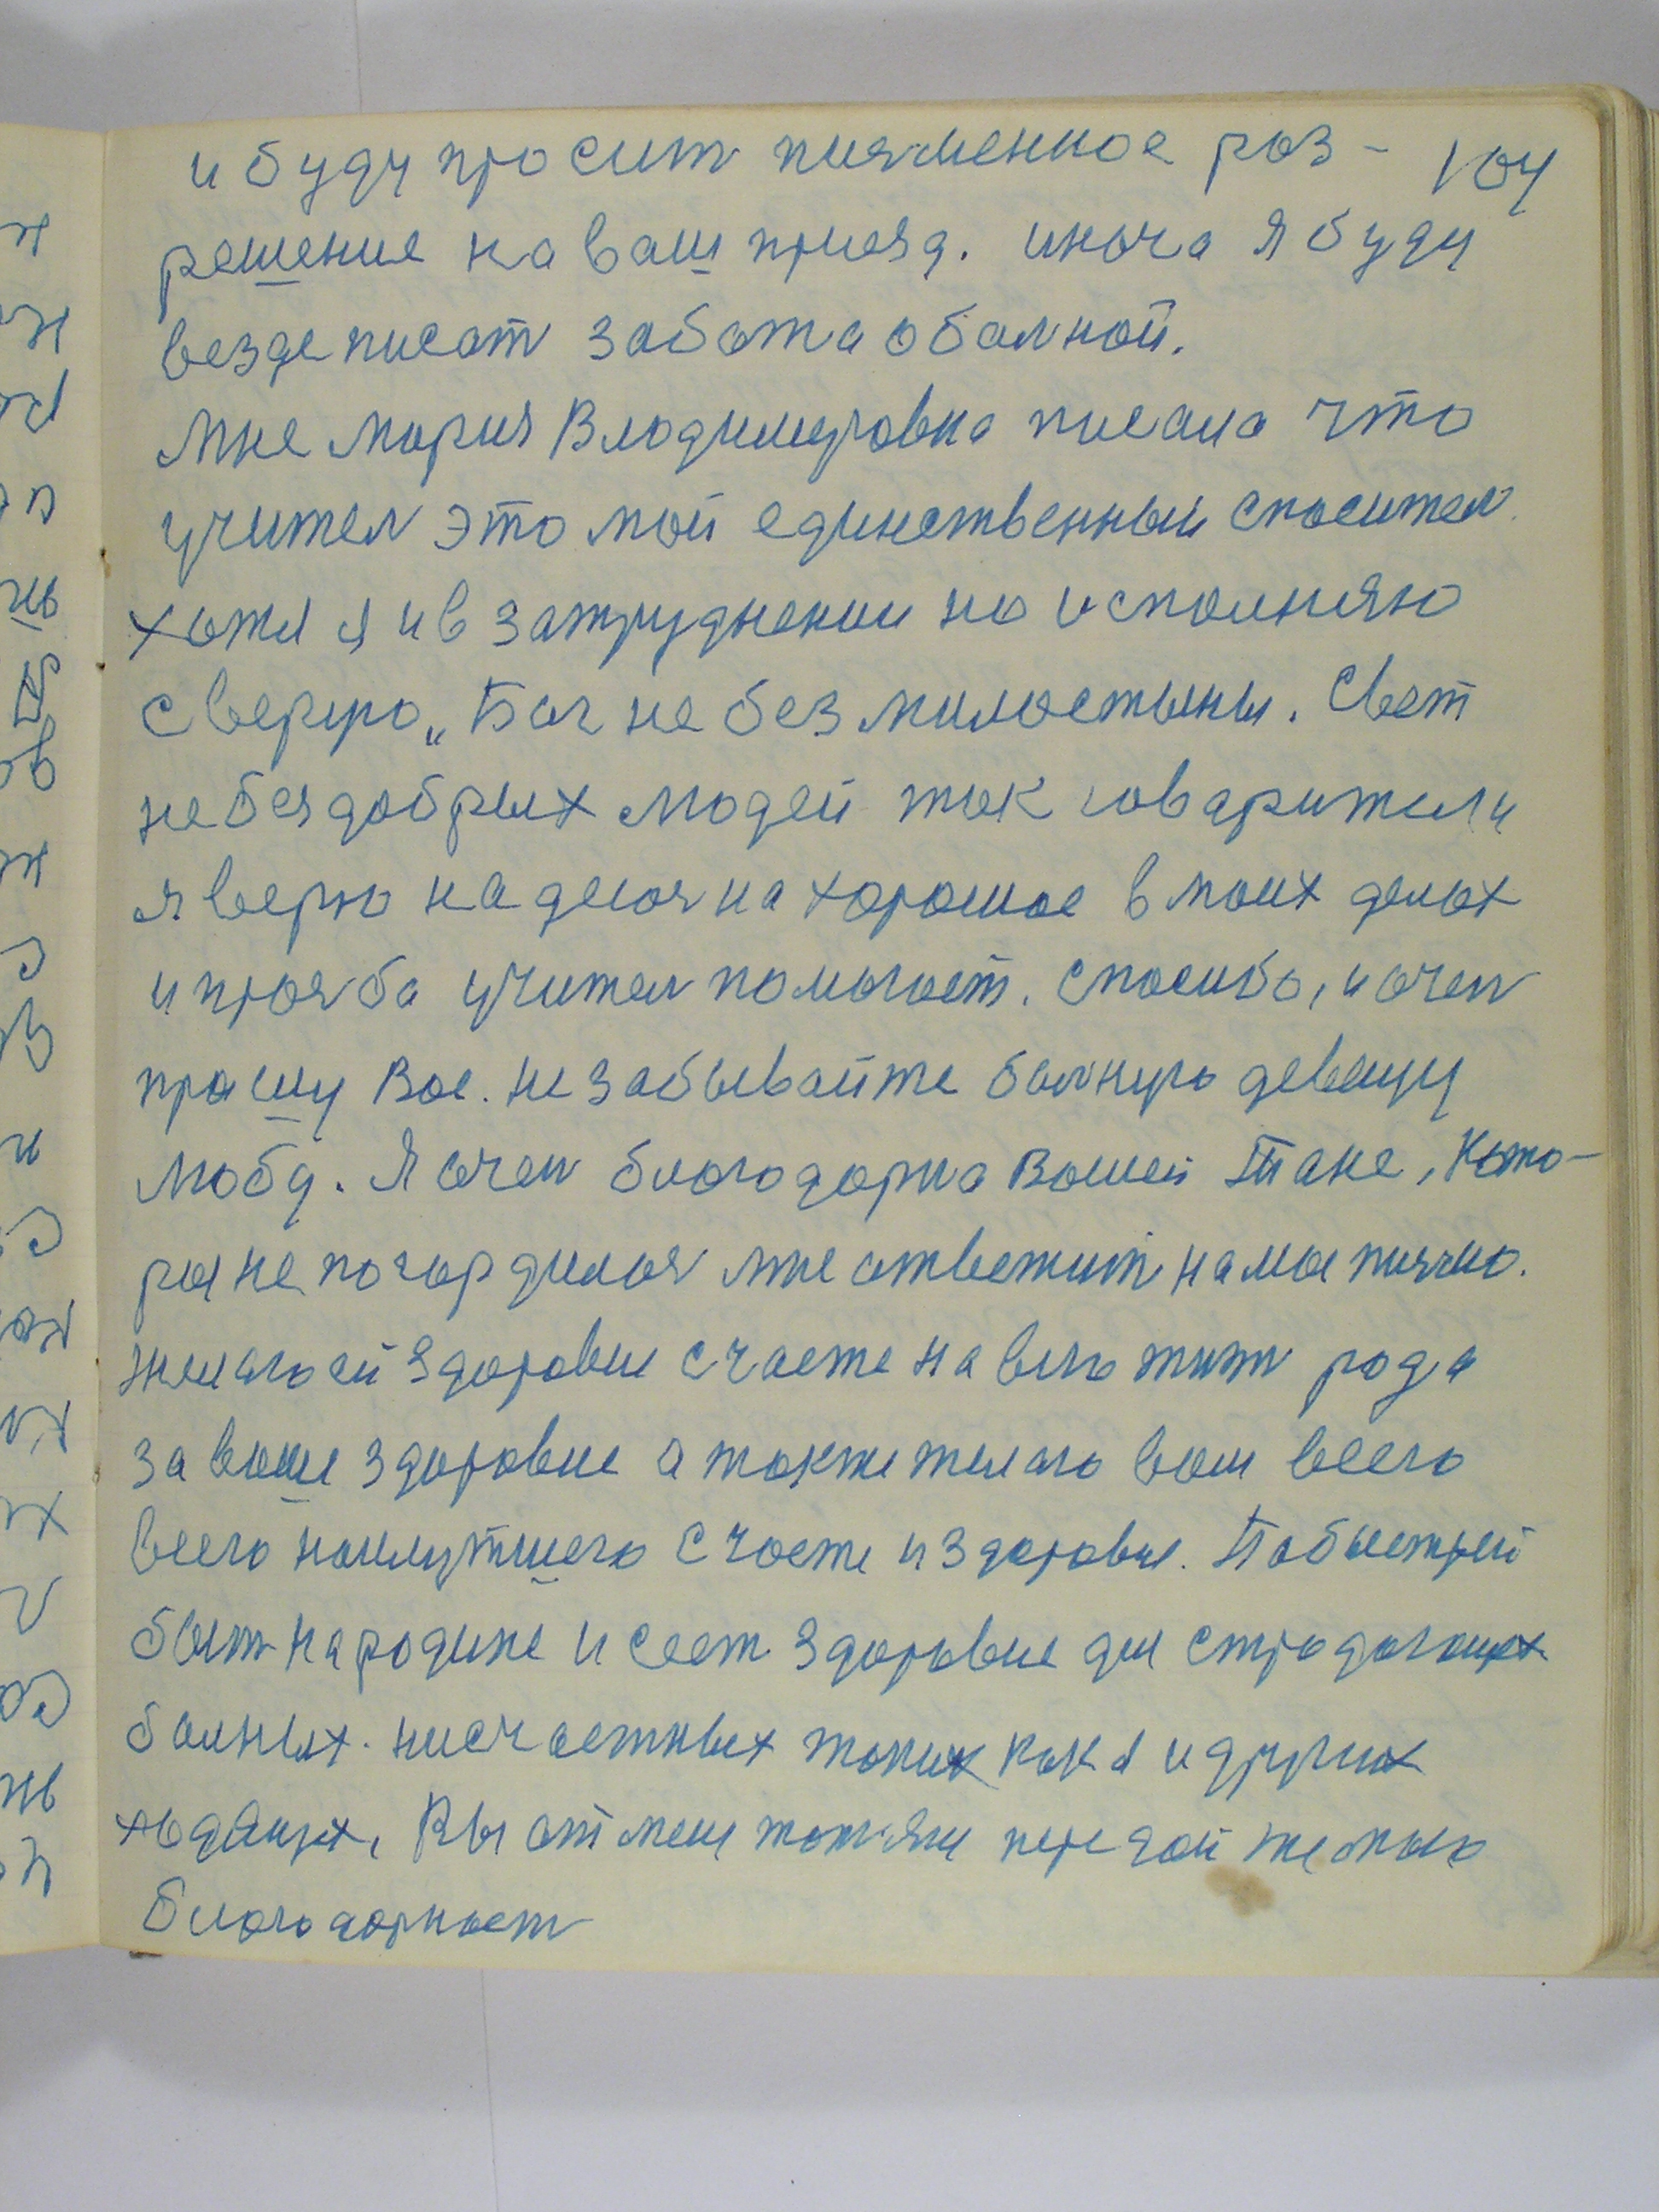 104
и буду просит писменное раз-
решение на ваш приезд. иноча я буду
везде писат забота о балной.
мне мария Владимировна писала что
учител это мой единственный спасител.
хотя я и в затруднении но исполняю
с верую „Бог не без милостыны. Свет
не без добрых людей так говарит или
я верю надеюя на хорошое в моих делах
и прозба учител помогает. спасибо, и очен
прошу Вас. не забывайте балную девицу
Любд. Я очен благодарна Вашей Тане, Кото-
рая не погордилоя мне ответит на мое писмо.
желаю ей здоровые счасте на всю жизн рада
за ваше здоровие а также желаю вам всего
всего наилутшего счасте и здоровья. Побыстрей
быт на родине и сеет здоровие для страдающих
балных. несчастных таких как я и других
ходящих. Вы от мене тоже передай же мою
благодарност